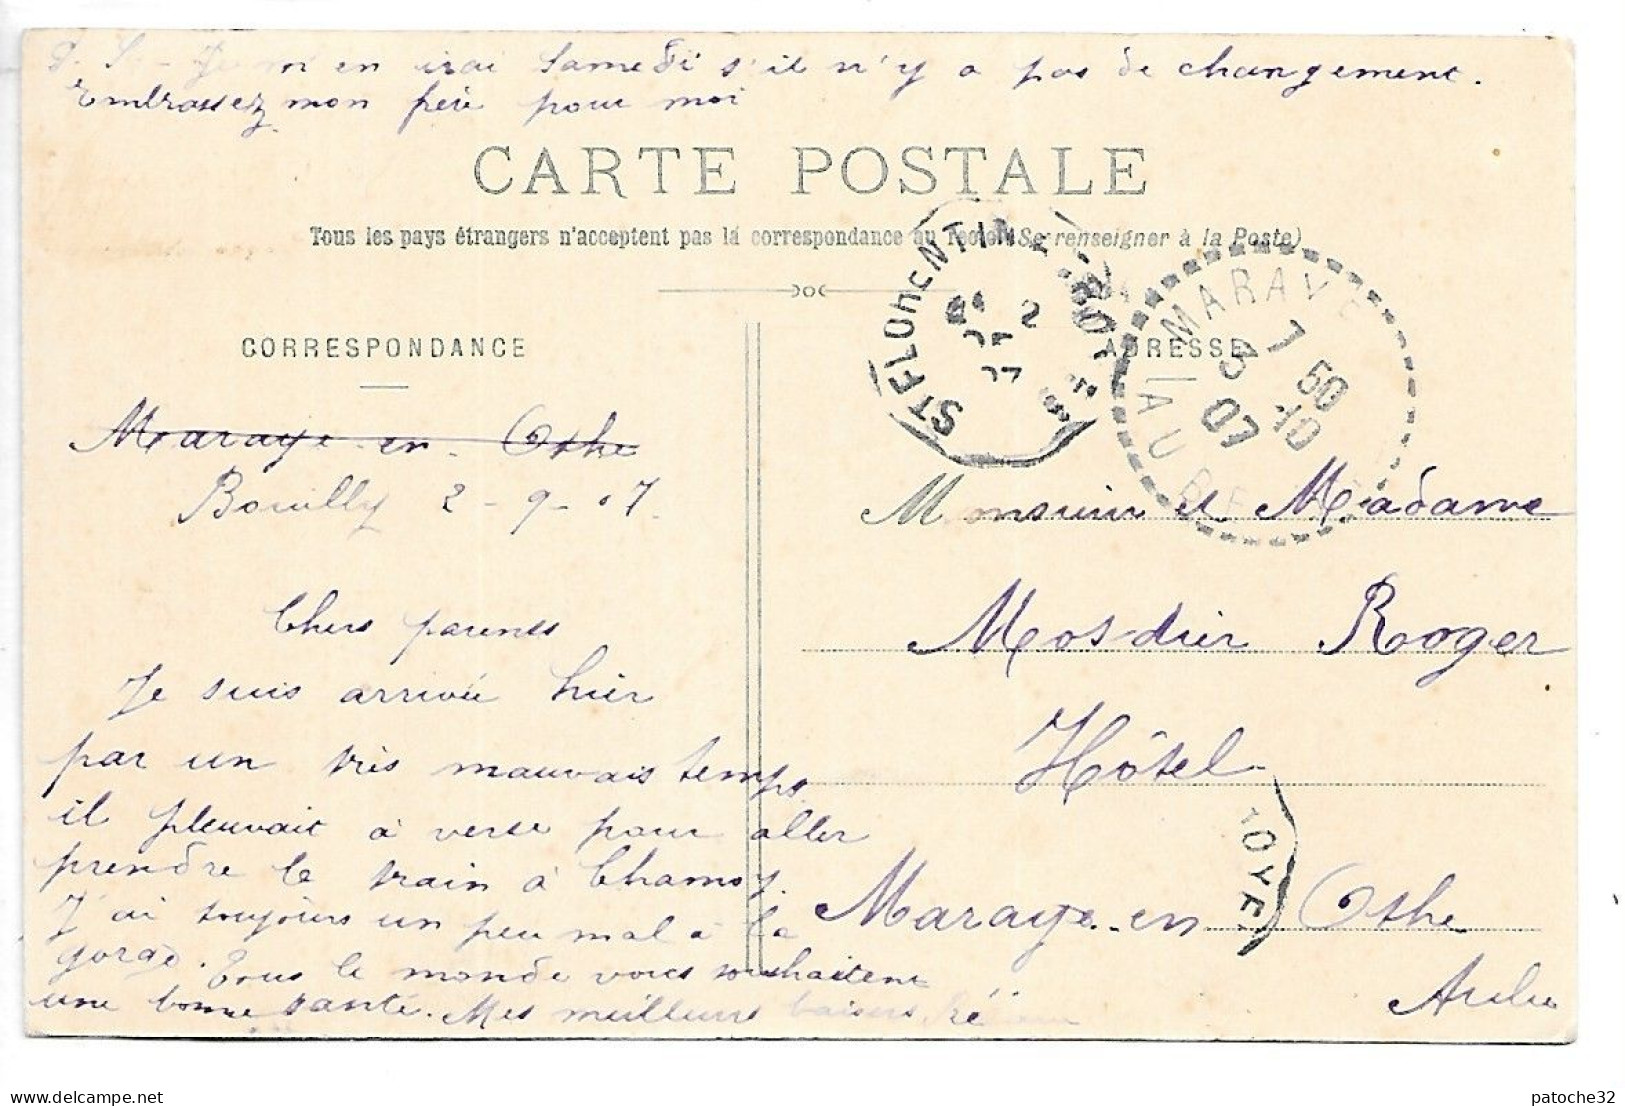 P. S. - Je m'en irai Samedi s'il n'y a pas de changement.
Embrassez mon père pour moi
CARTE POSTALE
Tous les pays étrangers n'acceptent pas la correspondance au recto (Se renseigner à la Poste)
CORRESPONDANCE
ADRESSE
Maraye-en-Othe
Bouilly 2-9-07.
Chers parents
Je suis arrivée hier
par un très mauvais temps
il pleuvait à verse pour aller
prendre le train à Chamoy.
J'ai toujours un peu mal à la
gorge. Tous le monde vous souhaitent
une bonne santé. Mes meilleurs baisers
Monsieur et Madame
Mosdier Roger
Hôtel
Maraye-en-Othe
Aube
ST FLORENTIN
2
07
MARAYE
AUBE
7 50
3 10
07
TROYES
patoche32